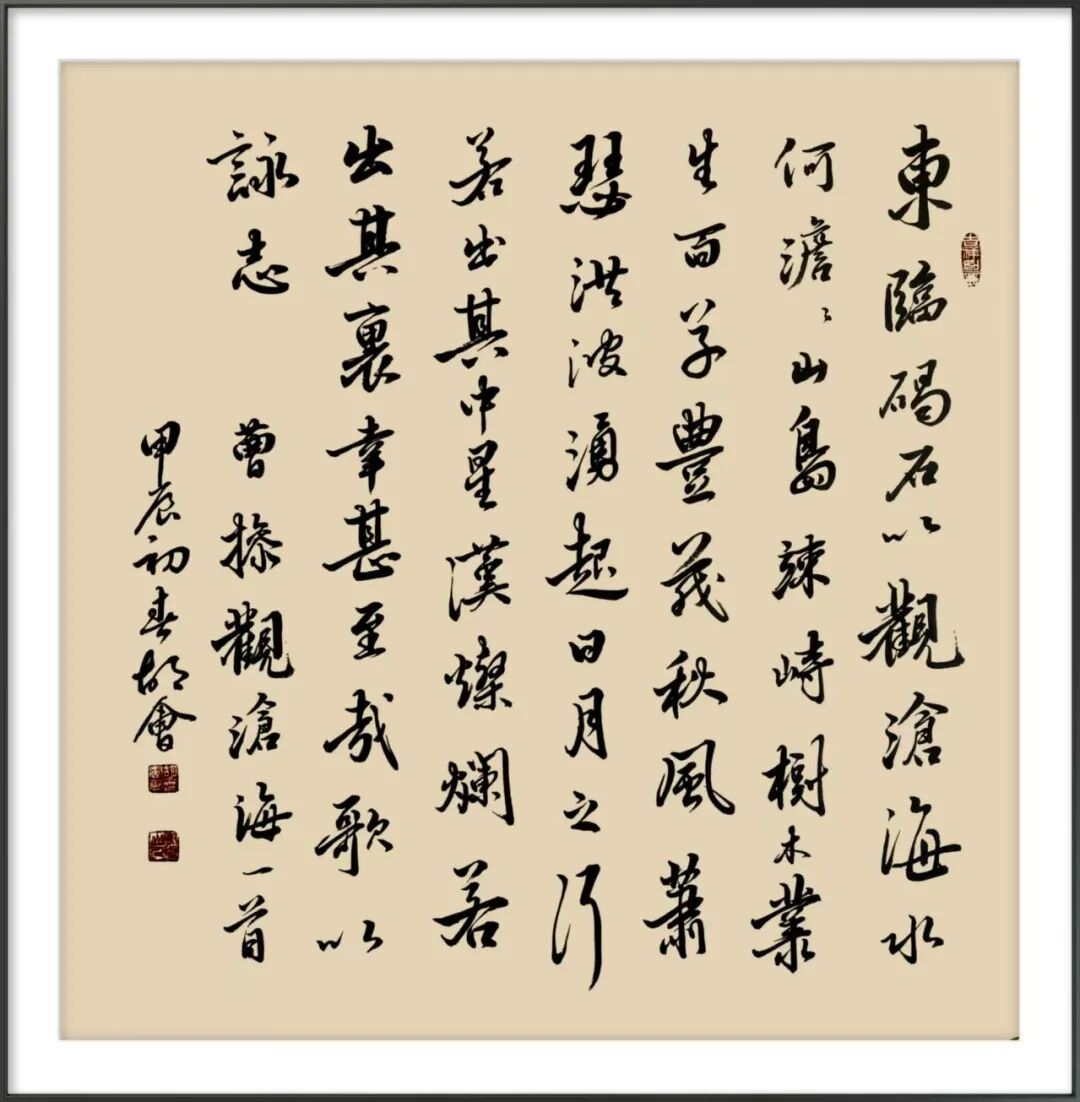 東臨碣石以觀滄海水
何澹〻山島竦峙樹木叢
生百草豐茂秋風蕭
瑟洪波湧起日月之行
若出其中星漢燦爛若
出其裏幸甚至哉歌以
詠志 曹操觀滄海一首
甲辰初春胡會